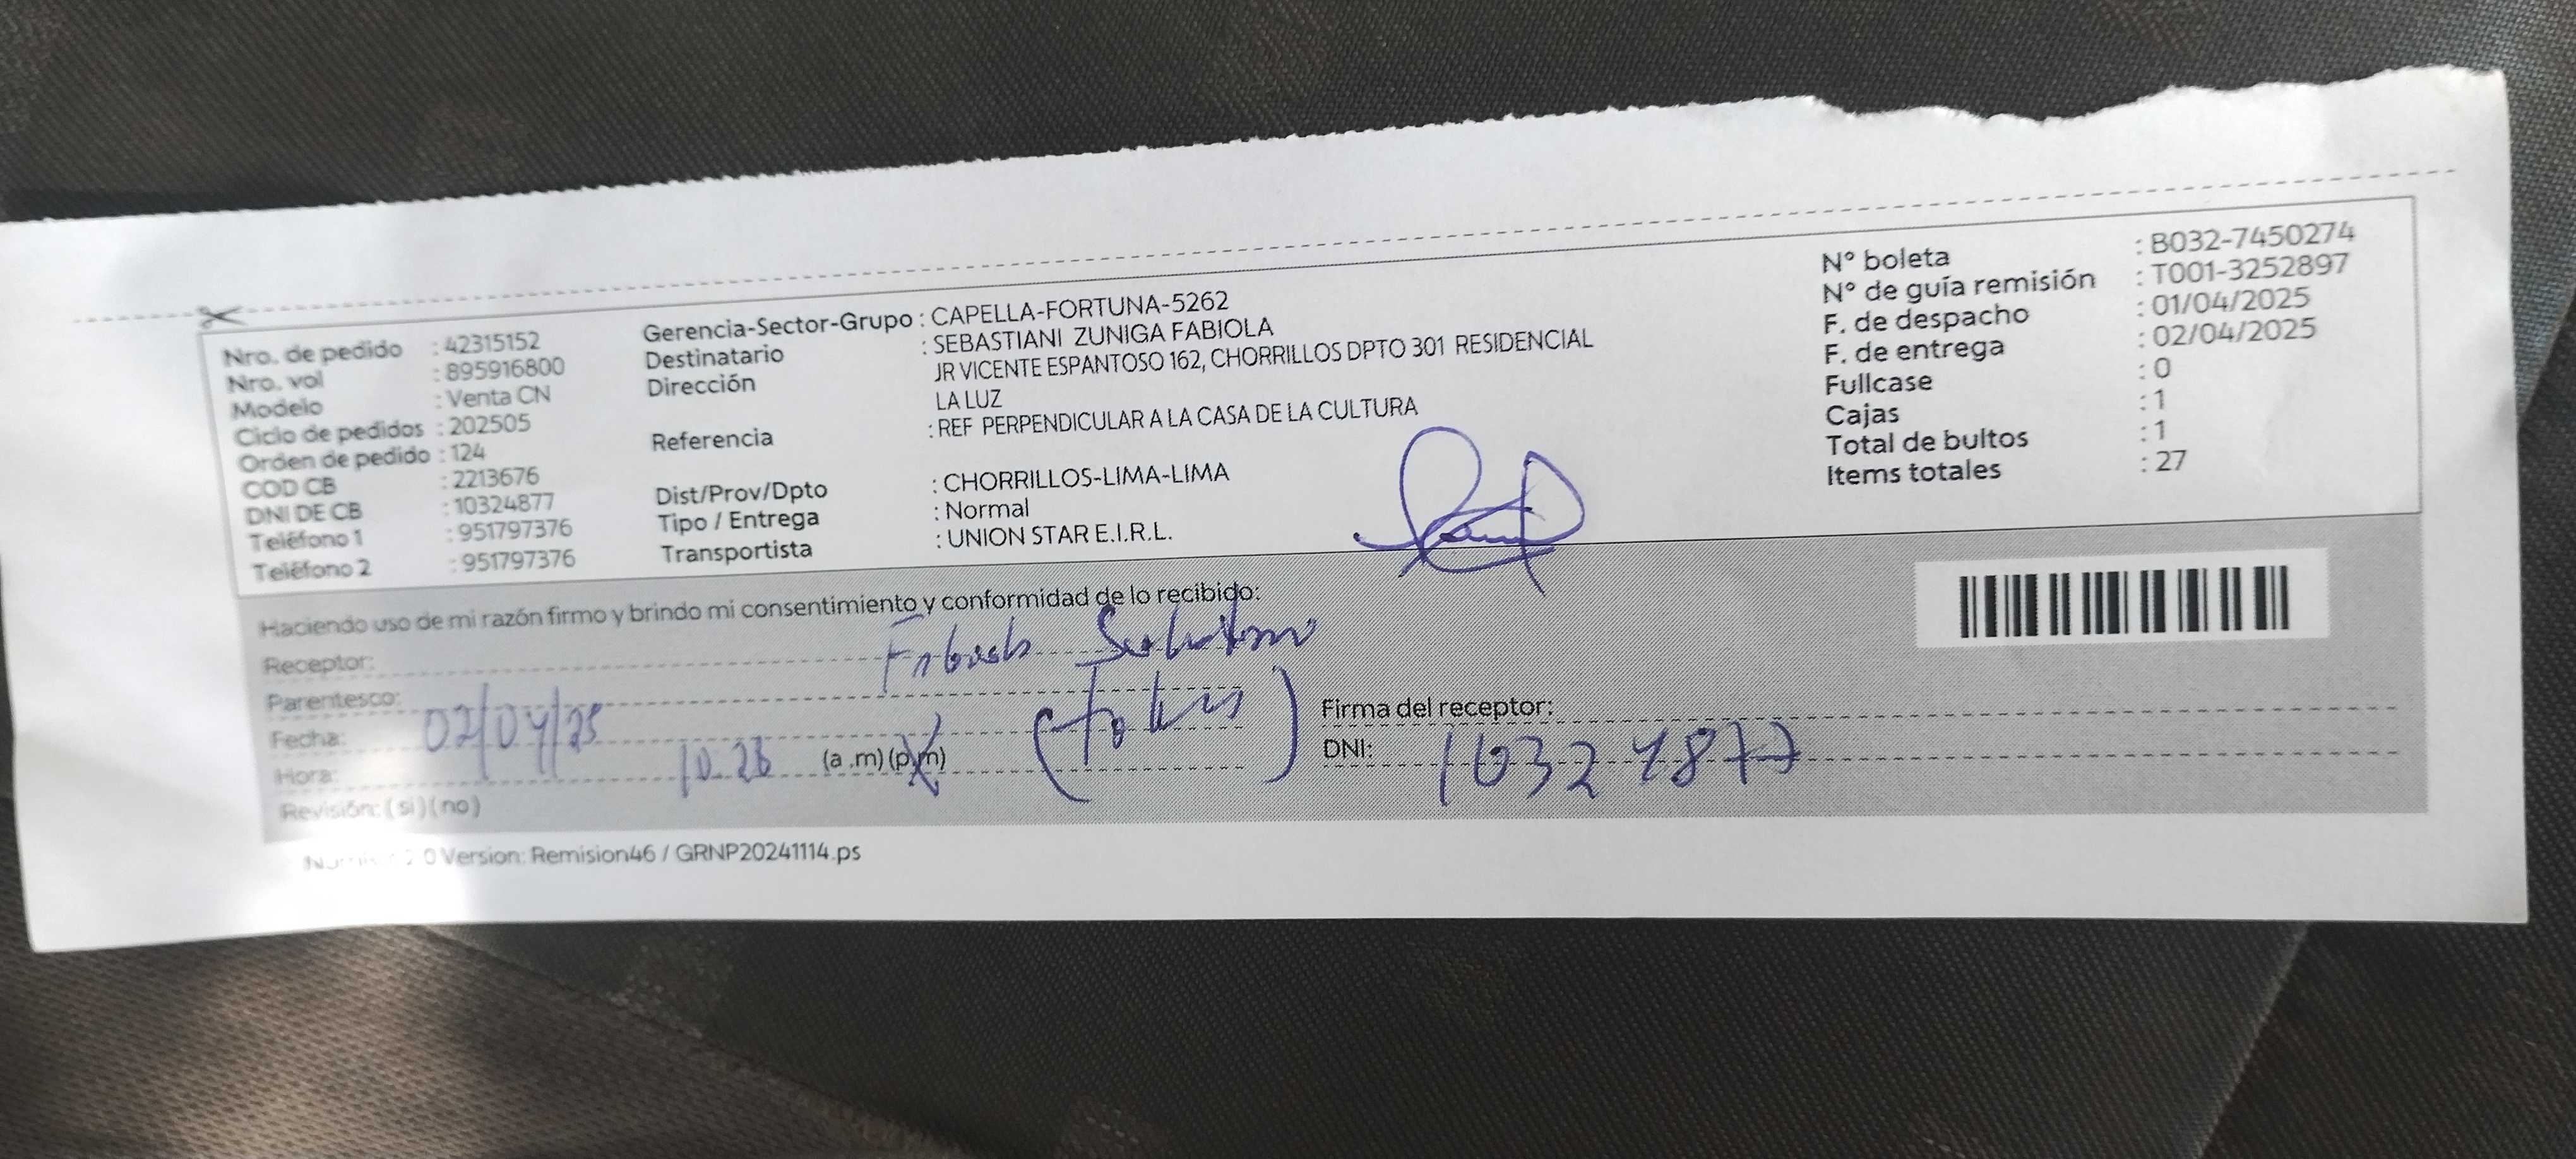 Nro. de pedido : 42315152
Nro. vol : 895916800
Modelo : Venta CN
Ciclo de pedidos : 202505
Orden de pedido : 124
COD CB : 2213676
DNI DE CB : 10324877
Teléfono 1 : 951797376
Teléfono 2 : 951797376
Gerencia-Sector-Grupo : CAPELLA-FORTUNA-5262
Destinatario : SEBASTIANI ZUNIGA FABIOLA
Dirección JR VICENTE ESPANTOSO 162, CHORRILLOS DPTO 301 RESIDENCIAL
LA LUZ
Referencia : REF PERPENDICULAR A LA CASA DE LA CULTURA
Dist/Prov/Dpto : CHORRILLOS-LIMA-LIMA
Tipo / Entrega : Normal
Transportista : UNION STAR E.I.R.L.
N° boleta : B032-7450274
N° de guía remisión : T001-3252897
F. de despacho : 01/04/2025
F. de entrega : 02/04/2025
Fullcase : 0
Cajas : 1
Total de bultos : 1
Items totales : 27
Haciendo uso de mi razón firmo y brindo mi consentimiento y conformidad de lo recibido:
Receptor:
Parentesco:
Fecha: 02/04/25
Hora: 10.26 (a .m) (p.m)
Revisión: ( si ) ( no )
Firma del receptor:
DNI: 10324877
0 Version: Remision46 / GRNP20241114.ps